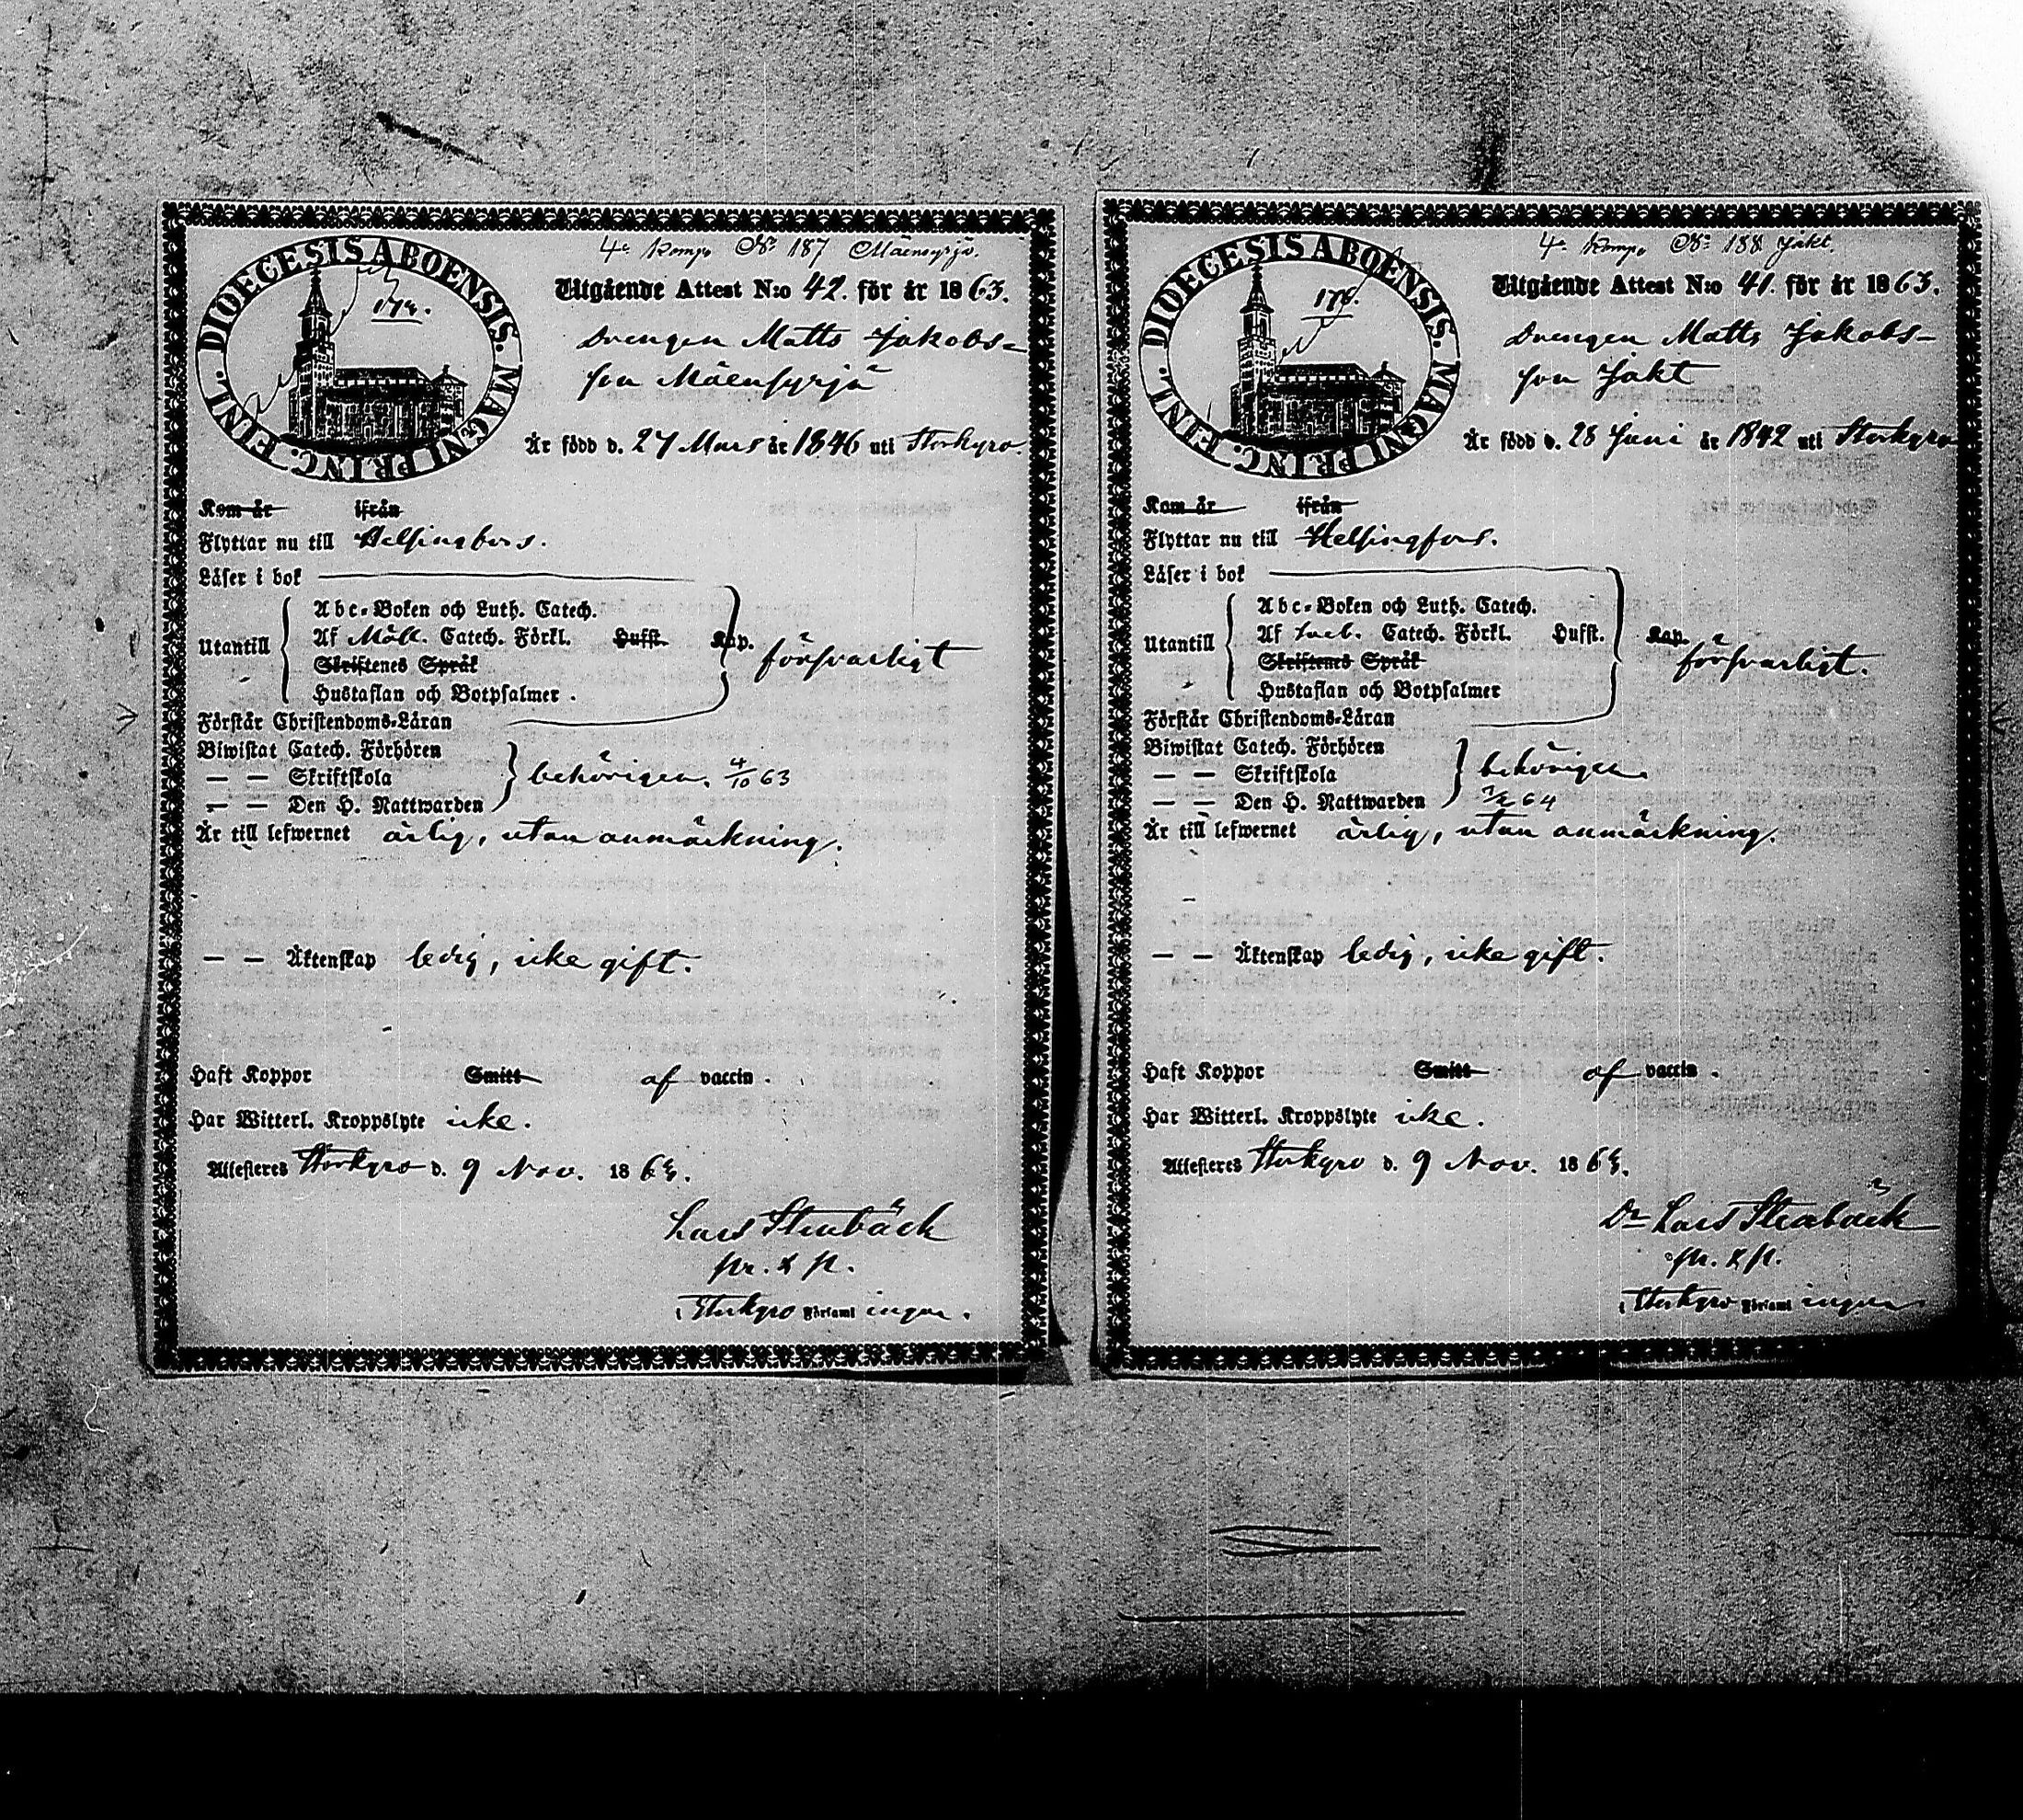 4e Komp No 187 Mäensyrjä.
DIOECESIS ABOENSIS. MAGNI PRINC. FINL.
174.
Utgående Attest N:o 42. för år 1863.
Drengen Matts Jakobs-
son Mäensyrjä
Är född d. 27 Mars år 1846 uti Storkyro.
Kom år ifrån
Flyttar nu till Helsingfors.
Läser i bok
Utantill
Abc-Boken och Luth. Catech.
Af Möll. Catech. Förkl. Hufst. Kap.
Skriftenes Språk
Hustaflan och Botpsalmer.
försvarligt
Förstår Christendoms-Läran
Biwistat Catech. Förhören
— — Skriftskola
— — Den H. Nattwarden
behörigen. 4/10 63
Är till lefwernet ärlig, utan anmärkning.
— — Äktenskap ledig, icke gift.
Haft Koppor Smitt af vaccin.
Har Witterl. Kroppslyte icke.
Attesteres Storkyro d. 9 Nov. 186
Lars Stenbäck
pr. & p.
i Storkyro Församl ingen.
4e Komp No 188 Jakt.
DIOECESIS ABOENSIS. MAGNI PRINC. FINL.
178.
Utgående Attest N:o 41. för år 1863.
Drengen Matts Jakobs-
son Jakt
Är född d. 28 Juni år 1842 uti Storkyro
Kom år ifrån
Flyttar nu till Helsingfors.
Läser i bok
Utantill
Abc-Boken och Luth. Catech.
Af Catech. Förkl. Hufst. Kap.
Skriftenes Språk
Hustaflan och Botpsalmer
försvarligt.
Förstår Christendoms-Läran
Biwistat Catech. Förhören
— — Skriftskola
— — Den H. Nattwarden
behörigen.
64
Är till lefwernet ärlig, utan anmärkning.
— — Äktenskap ledig, icke gift.
Haft Koppor Smitt af vaccin.
Har Witterl. Kroppslyte icke.
Attesteres Storkyro d. 9 Nov. 186
Dr Lars Stenbäck
pr. & p.
i Storkyro Församl ingen.